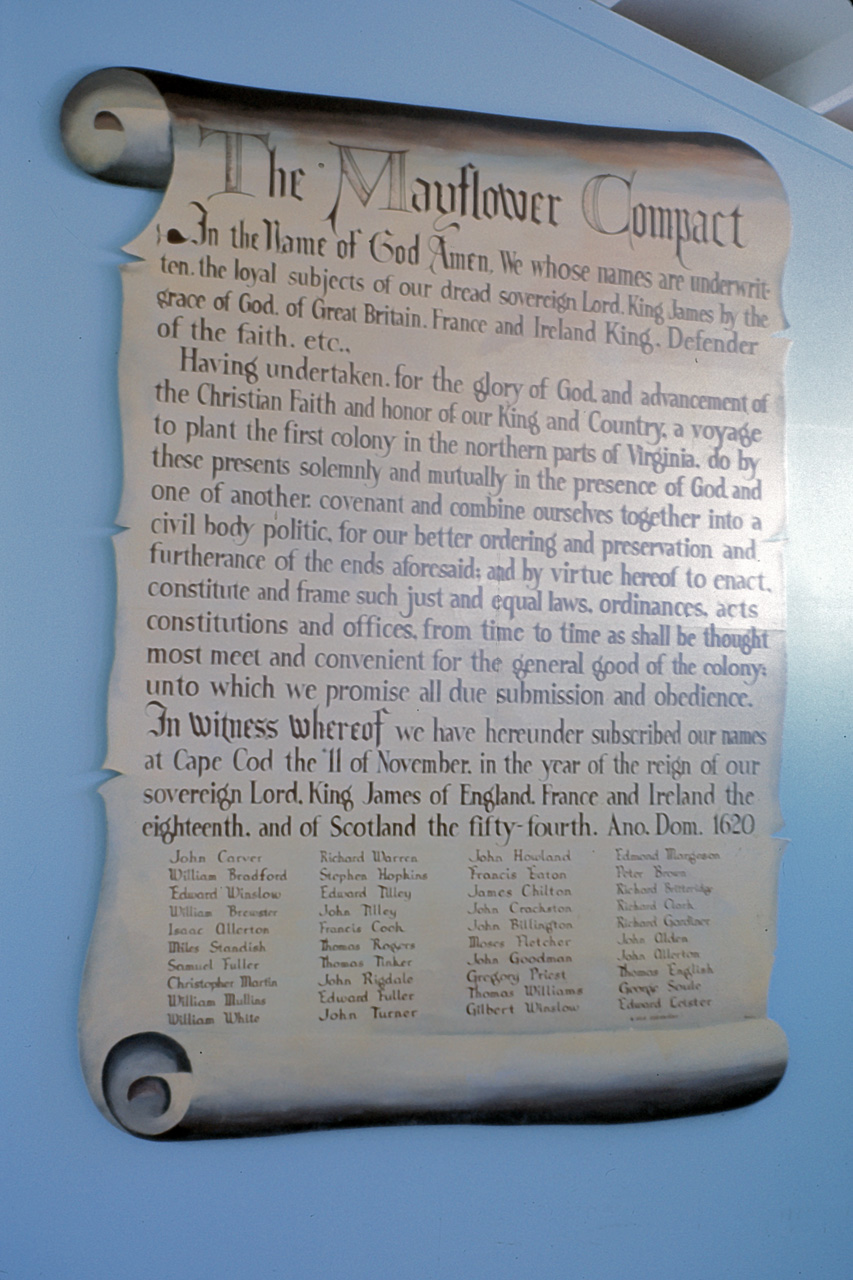 The Mayflower Compact
In the Name of God Amen, We whose names are underwrit-
ten. the loyal subjects of our dread sovereign Lord, King James by the
grace of God, of Great Britain, France and Ireland King, Defender
of the faith, etc.,
Having undertaken, for the glory of God, and advancement of
the Christian Faith and honor of our King and Country, a voyage
to plant the first colony in the northern parts of Virginia, do by
these presents solemnly and mutually in the presence of God, and
one of another, covenant and combine ourselves together into a
civil body politic, for our better ordering and preservation and
furtherance of the ends aforesaid; and by virtue hereof to enact,
constitute and frame such just and equal laws, ordinances, acts
constitutions and offices, from time to time as shall be thought
most meet and convenient for the general good of the colony;
unto which we promise all due submission and obedience.
In witness whereof we have hereunder subscribed our names
at Cape Cod the 11 of November, in the year of the reign of our
sovereign Lord, King James of England, France and Ireland the
eighteenth, and of Scotland the fifty-fourth. Ano. Dom. 1620
John Carver
William Bradford
Edward Winslow
William Brewster
Isaac Allerton
Miles Standish
Samuel Fuller
Christopher Martin
William Mullins
William White
Richard Warren
Stephen Hopkins
Edward Tilley
John Tilley
Francis Cook
Thomas Rogers
Thomas Tinker
John Rigdale
Edward Fuller
John Turner
John Howland
Francis Eaton
James Chilton
John Crackston
John Billington
Moses Fletcher
John Goodman
Gregory Priest
Thomas Williams
Gilbert Winslow
Edmond Margeson
Peter Brown
Richard Britteridge
Richard Clark
Richard Gardiner
John Alden
John Allerton
Thomas English
George Soule
Edward Leister